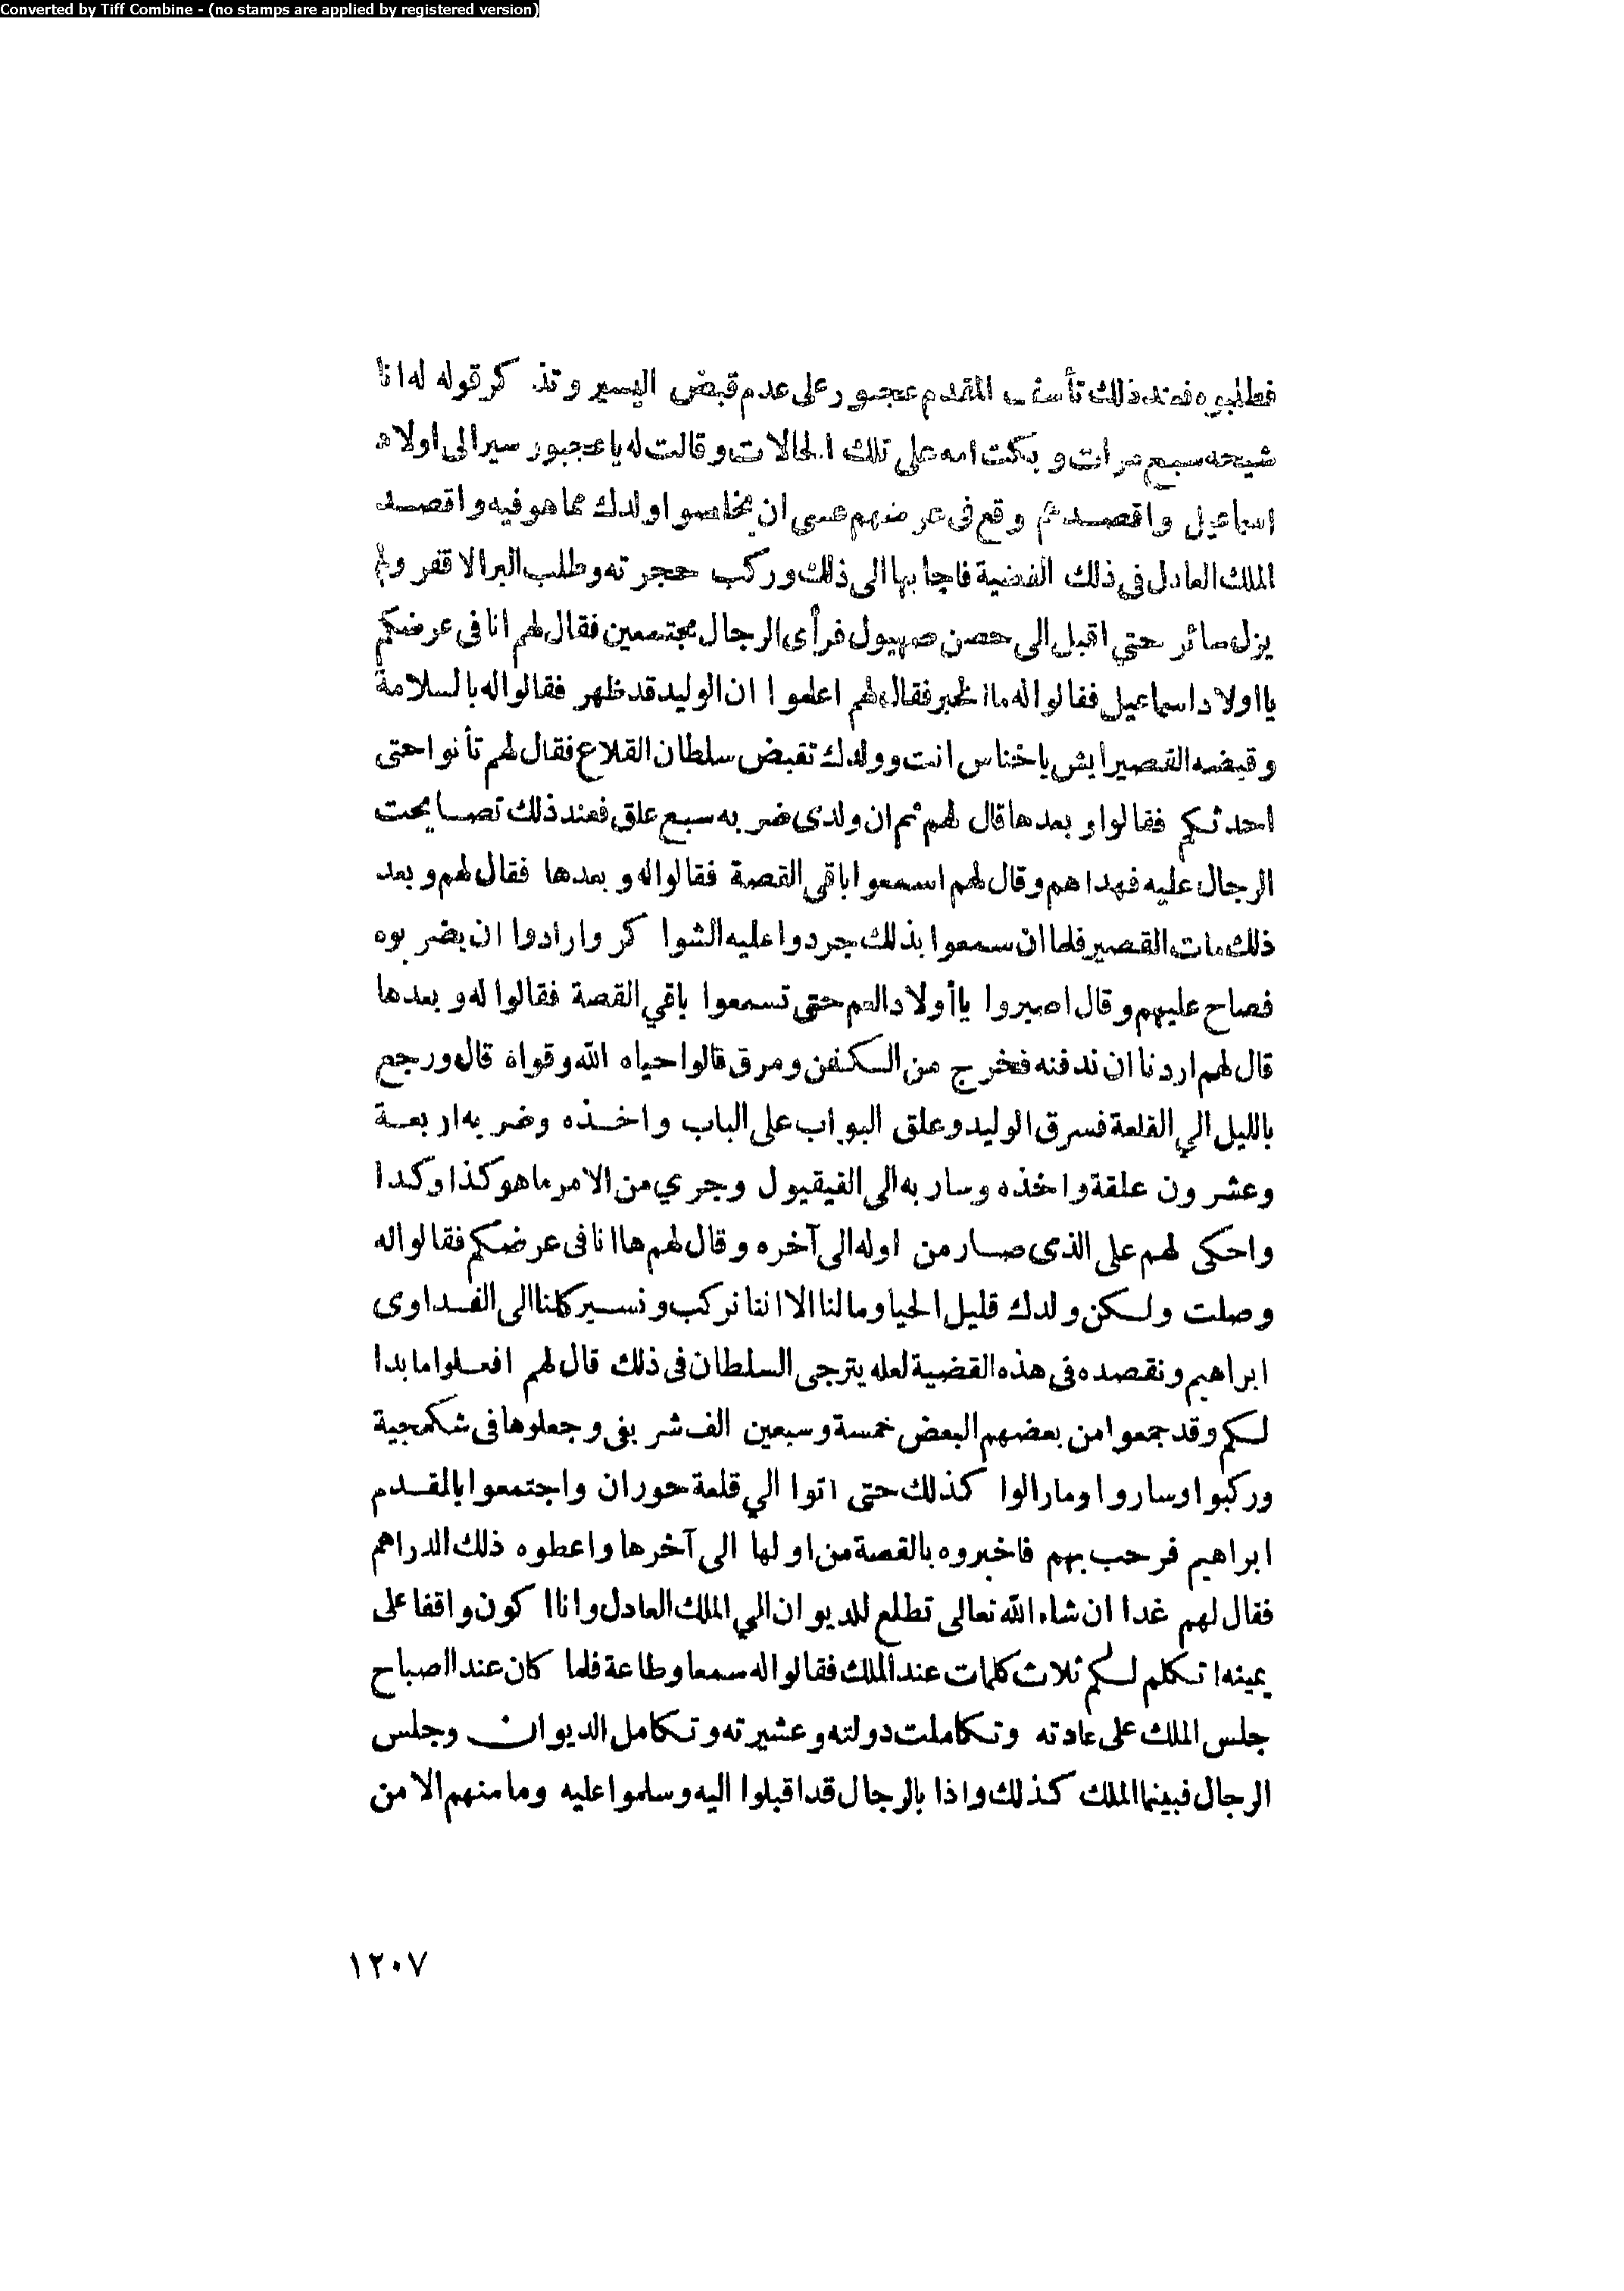 Converted by Tiff Combine - (no stamps are applied by registered version)
فطلبوه فعند ذلك تأسف المقدم عجبور على عدم قبض اليسير وتذ كر قوله له انا
شيحه سبع مرات و بكت امه على تلك الحالات وقالت له يا عجبور سير الى اولاد
اسماعيل واقصدهم وقع فى عرضهم عسى ان يخلصوا ولدك مما هو فيه واقصد
الملك العادل فى ذلك القضية فاجابها الى ذلك وركب حجرته وطلب البر الاقفر ولم
يزل سائر حتي اقبل الى حصن صهيول فرأى الرجال مجتمعين فقال لهم انا فى عرضكم
يا اولاد اسماعيل فقالوا له ما الخبر فقال لهم اعلموا ان الوليد قد ظهر فقالوا له بالسلامة
وقبضه القصير ايش يا خناس انت وولدك تقبض سلطان القلاع فقال لهم تأنوا حتى
احدثكم فقالوا و بعدها قال لهم ثم ان ولدى ضربه سبع علق فعند ذلك تصايحت
الرجال عليه فهداهم وقال لهم اسمعوا باقى القصة فقالوا له و بعدها فقال لهم و بعد
ذلك مات القصير فلما ان سمعوا بذلك جردوا عليه الشوا كر وارادوا ان يضر بوه
فصاح عليهم وقال اصبروا يا أولاد العم حتى تسمعوا باقي القصة فقالوا له و بعدها
قال لهم اردنا ان ندفنه فخرج من الكفن ومرق قالوا حياه الله وقواه قال ورجع
بالليل الي القلعة فسرق الوليد وعلق البواب على الباب واخذه وضر به اربعة
وعشرون علقة واخذه وسار به الى الفيقيول وجري من الامر ما هو كذا وكدا
واحكى لهم على الذى صار من اوله الى آخره وقال لهم ها انا فى عرضكم فقالوا له
وصلت ولكن ولدك قليل الحيا وما لنا الا اننا نركب ونسير كلنا الى الفداوى
ابراهيم ونقصده فى هذه القضية لعله يترجى السلطان فى ذلك قال لهم افعلوا ما بدا
لكم وقد جمعوا من بعضهم البعض خمسة وسبعين الف شريفى وجعلوها فى شكمجية
وركبوا وساروا وما رالوا كذلك حتى اتوا الي قلعة حوران واجتمعوا بالمقدم
ابراهيم فرحب بهم فاخبروه بالقصة من اولها الى آخرها واعطوه ذلك الدراهم
فقال لهم غدا ان شاء الله تعالى تطلع للديوان الي الملك العادل وانا ا كون واقفا على
يمينه اتكلم لكم ثلاث كلمات عند الملك فقالوا له سمعا وطاعة فلما كان عند الصباح
جلس الملك على عادته وتكاملت دولته وعشيرته وتكامل الديوان وجلس
الرجال فبينما الملك كذلك واذا بالرجال قد اقبلوا اليه وسلموا عليه وما منهم الا من
١٢٠٧